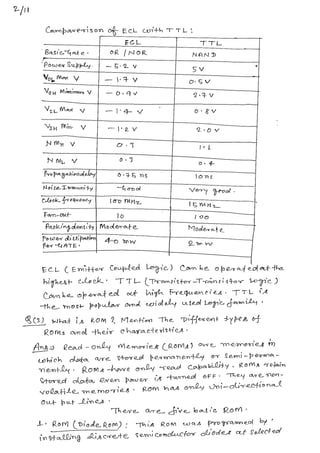 2/11
Comparerison of ECL with TTL:
ECL TTL
Basic "Gate. OR / NOR NAND
Power Supply. - 5.2 V 5 V
VOL Max V - 1.7 V 0.5 V
VOH Minimum V - 0.9 V 2.7 V
VIL Max V - 1.4 V 0.8 V
VIH Min V - 1.2 V 2.0 V
NMH V 0.3 
NML V 0.3 0.4
Propagation delay 0.75 ns 10 ns
Noise Immunity Good Very good.
Clock frequency 100 MHz 15 MHz
Fan-out 10 100
Packing density Moderate Moderate
Power dissipation Per GATE. 40 mw 2 mw
ECL (Emitter Coupled Logic) Can be operated at the
highest clock. TTL (Transistor-Transistor Logic)
Can be operated at high Frequencies. TTL is
the most popular and widely used Logic family.
Q(3) What is ROM? Mention The Different types of
ROMs and their characteristics.
Ans:) Read-only memories (ROMs) are memories in
which data are stored permanently or semi-perma-
nently. ROMs have only read capability. ROMs retain
stored data even power is turned OFF. They are non-
volatile memories. ROM has only Uni-directional
Out put lines.
There are five basic ROM.
1. ROM (Diode ROM): This ROM was programed by
installing discrete semiconductor diodes at selected